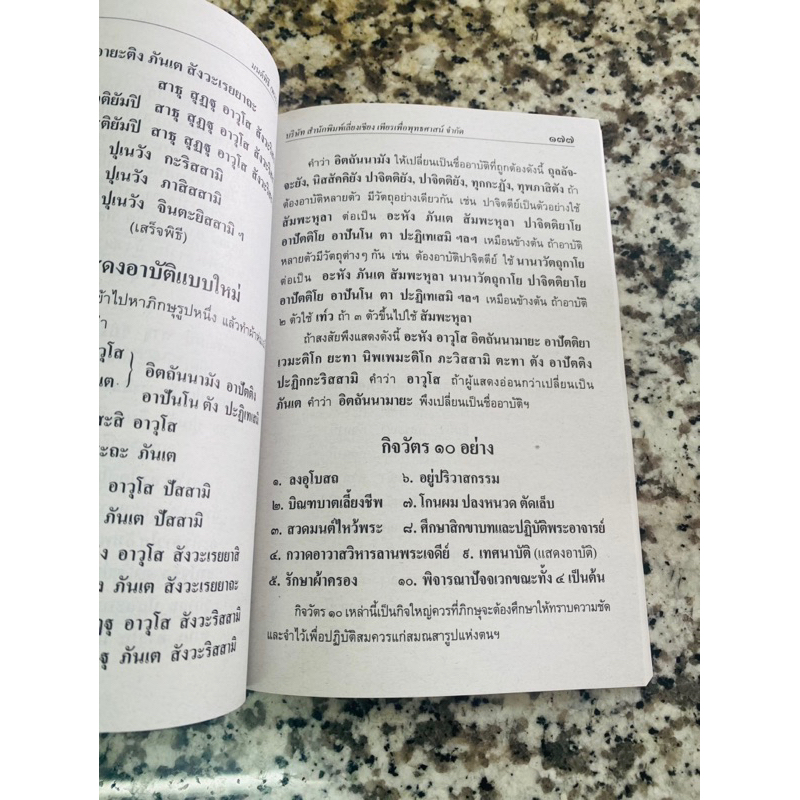 อายะติง ภันเต สังวะเรยยาถะ
สาธุ สุฏฐุ อาวุโส
สาธุ สุฏฐุ อาวุโส
สาธุ สุฏฐุ อาวุโส
ปุเนวัง กะริสสามิ
ปุเนวัง ภาสิสสามิ
ปุเนวัง จินตะยิสสามิ ฯ
(เสร็จพิธี)
แสดงอาบัติแบบใหม่
เข้าไปหาภิกษุรูปหนึ่ง แล้วทำผ้า
อาวุโส
อิตถันนามัง อาปัตติง
อาปันโน ตัง ปะฏิเทเสมิ
อาวุโส
ภันเต
อาวุโส ปัสสามิ
ภันเต ปัสสามิ
อาวุโส สังวะเรยยาสิ
ภันเต สังวะเรยยาถะ
อาวุโส สังวะริสสามิ
ภันเต สังวะริสสามิ
บริษัท สำนักพิมพ์เลี่ยงเชียง เพียรเพื่อพุทธศาสน์ จำกัด ๑๗๗
คำว่า อิตถันนามัง ให้เปลี่ยนเป็นชื่ออาบัติที่ถูกต้องดังนี้ ถุลลัจ-
จะยัง, นิสสัคคิยัง ปาจิตติยัง, ปาจิตติยัง, ทุกกะฏัง, ทุพภาสิตัง ถ้า
ต้องอาบัติหลายตัว มีวัตถุอย่างเดียวกัน เช่น ปาจิตตีย์เป็นตัวอย่างใช้
สัมพะหุลา ต่อเป็น อะหัง ภันเต สัมพะหุลา ปาจิตติยาโย
อาปัตติโย อาปันโน ตา ปะฏิเทเสมิ ฯลฯ เหมือนข้างต้น ถ้าอาบัติ
หลายตัวมีวัตถุต่างๆ กัน เช่น ต้องอาบัติปาจิตตีย์ ใช้ นานาวัตถุกาโย
ต่อเป็น อะหัง ภันเต สัมพะหุลา นานาวัตถุกาโย ปาจิตติยาโย
อาปัตติโย อาปันโน ตา ปะฏิเทเสมิ ฯลฯ เหมือนข้างต้น ถ้าอาบัติ
๒ ตัวใช้ เท๎ว ถ้า ๓ ตัวขึ้นไปใช้ สัมพะหุลา
ถ้าสงสัยพึงแสดงดังนี้ อะหัง อาวุโส อิตถันนามายะ อาปัตติยา
เวมะติโก ยะทา นิพเพมะติโก ภะวิสสามิ ตะทา ตัง อาปัตติง
ปะฏิกกะริสสามิ คำว่า อาวุโส ถ้าผู้แสดงอ่อนกว่าเปลี่ยนเป็น
ภันเต คำว่า อิตถันนามายะ พึงเปลี่ยนเป็นชื่ออาบัติฯ
กิจวัตร ๑๐ อย่าง
๑. ลงอุโบสถ ๖. อยู่ปริวาสกรรม
๒. บิณฑบาตเลี้ยงชีพ ๗. โกนผม ปลงหนวด ตัดเล็บ
๓. สวดมนต์ไหว้พระ ๘. ศึกษาสิกขาบทและปฏิบัติพระอาจารย์
๔. กวาดอาวาสวิหารลานพระเจดีย์ ๙. เทศนาบัติ (แสดงอาบัติ)
๕. รักษาผ้าครอง ๑๐. พิจารณาปัจจเวกขณะทั้ง ๔ เป็นต้น
กิจวัตร ๑๐ เหล่านี้เป็นกิจใหญ่ควรที่ภิกษุจะต้องศึกษาให้ทราบความชัด
และจำไว้เพื่อปฏิบัติสมควรแก่สมณสารูปแห่งตนฯ